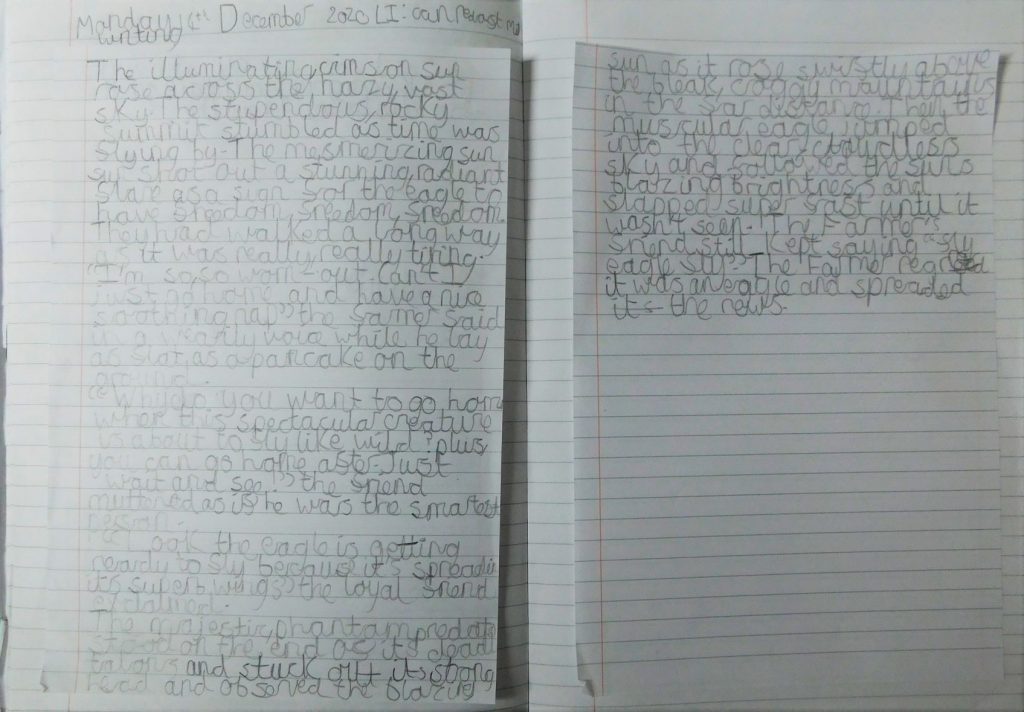 Manday 14th December 2020 LI: can redraft my
writing
The illuminating, crimson sun
rose across the hazy, vast
sky. The stupendous, rocky
summit stumbled as time was
flying by. The mesmerizing sun
sun shot out a stunning, radiant
flare as a sign for the eagle to
have freedom, freedom, freedom.
They had walked a long way
as it was really really tiring.
"I'm so so worn-out. Can't I
just go home and have a nice
soothing nap," the farmer said
in a weartly voice while he lay
as flat as a pancake on the
ground.
"Why do you want to go home
when this spectacular creature
is about to fly like wild? plus
you can go home after. Just
wait and see," the friend
muttered as if he wars the smartest
person.
"Look the eagle is getting
ready to fly because it's spreading
its superb wings," the loyal friend
exclaimed.
The majestic, phantam predator
stood on the end of its deadly
talons and stuck out its strong
head and observed the blazing
sun as it rose swiftly above
the bleak, craggy mountains
in the far distance. Then the
muscular eagle jumped
into the clear, cloudless
sky and followed the suns
blazing brightness and
flapped super fast until it
wasn't seen. The Farmer's
friend still kept saying "fly
eagle fly". The Farmer
it was an eagle and spreaded
the news.